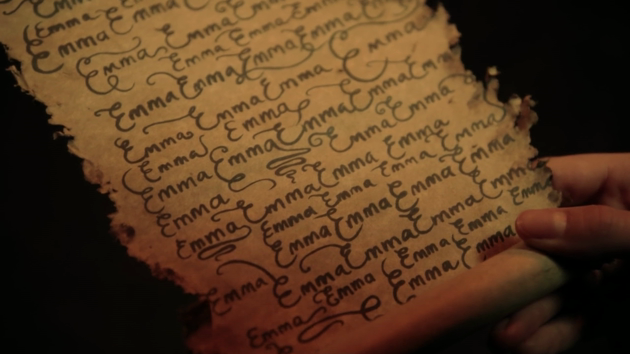 Emma Emma Emma
Emma Emma Emma Emma
Emma Emma Emma Emma
Emma Emma Emma Emma
Emma Emma Emma Emma Emma
Emma Emma Emma Emma
Emma Emma Emma Emma
Emma Emma Emma Emma
Emma Emma Emma Emma
Emma Emma Emma Emma
Emma Emma Emma Emma
Emma Emma Emma Emma
Emma Emma Emma
Emma